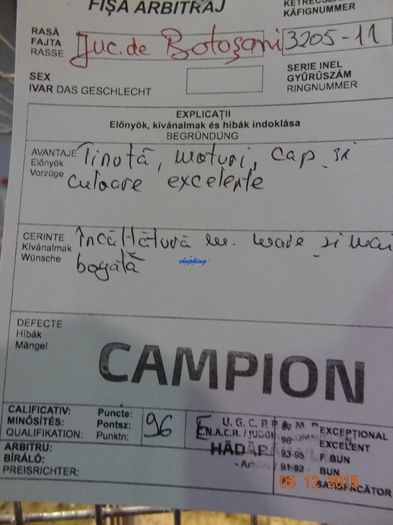 FIȘA ARBITRAJ
KÁFIGNUMMER
RASĂ
FAJTA
RASSE
Juc. de Botoșani
3205-11
SEX
IVAR DAS GESCHLECHT
SERIE INEL
GYŰRŰSZÁM
RINGNUMMER
EXPLICAȚII
Előnyök, kívánalmak és hibák indoklása
BEGRÜNDUNG
AVANTAJE
Előnyök
Vorzüge
Ținută, moturi, cap și
culoare excelente
CERINTE
Kívánalmak
Wünsche
Încălțătură m. mare și mai
bogată
DEFECTE
Hibák
Mängel
CAMPION
CALIFICATIV:
MINŐSÍTÉS:
QUALIFIKATION:
Puncte:
Pontsz:
Punktn:
96
E
U. G. C. P. P.
HĂDĂR
96-
93-95
91-92
EXCEPTIONAL
EXCELENT
F. BUN
BUN
SATISFĂCĂTOR
ARBITRU:
BÍRÁLÓ:
PREISRICHTER:
05 12 2015